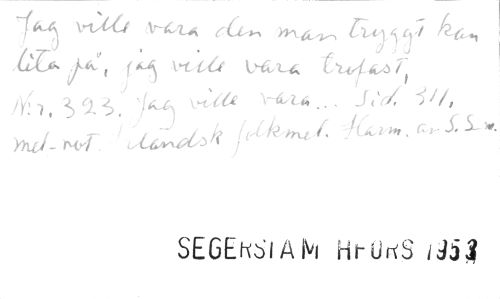 Jag ville vara den man tryggt kan
lita på, jag ville vara trofast,
N:r. 323. Jag ville vara... Sid. 311.
mel-not. Irländsk folkmel. Harm. av S. S-m.
SEGERSTAM HFORS 1953